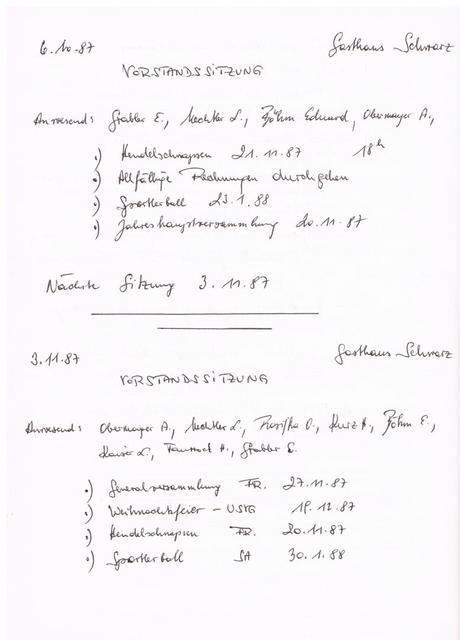 6.10.87 Gasthaus Schwarz
VORSTANDSSITZUNG
Anwesend: Grabler E., Mechtler L., Böhm Eduard, Obermayer A.,
.) Hendelschnapsen 21.11.87 18h
.) Allfällige Rechnungen durchgehen
.) Sportlerball 23.1.88
.) Jahreshauptversammlung 20.11.87
Nächste Sitzung 3.11.87
3.11.87 Gasthaus Schwarz
VORSTANDSSITZUNG
Anwesend: Obermayer A., Mechtler L., O., Kurz H., Böhm E.,
Kaiser L., H., Grabler E.
.) Generalversammlung FR. 27.11.87
.) Weihnachtsfeier - USVG 19.12.87
.) Hendelschnapsen FR. 20.11.87
.) Sportlerball SA 30.1.88